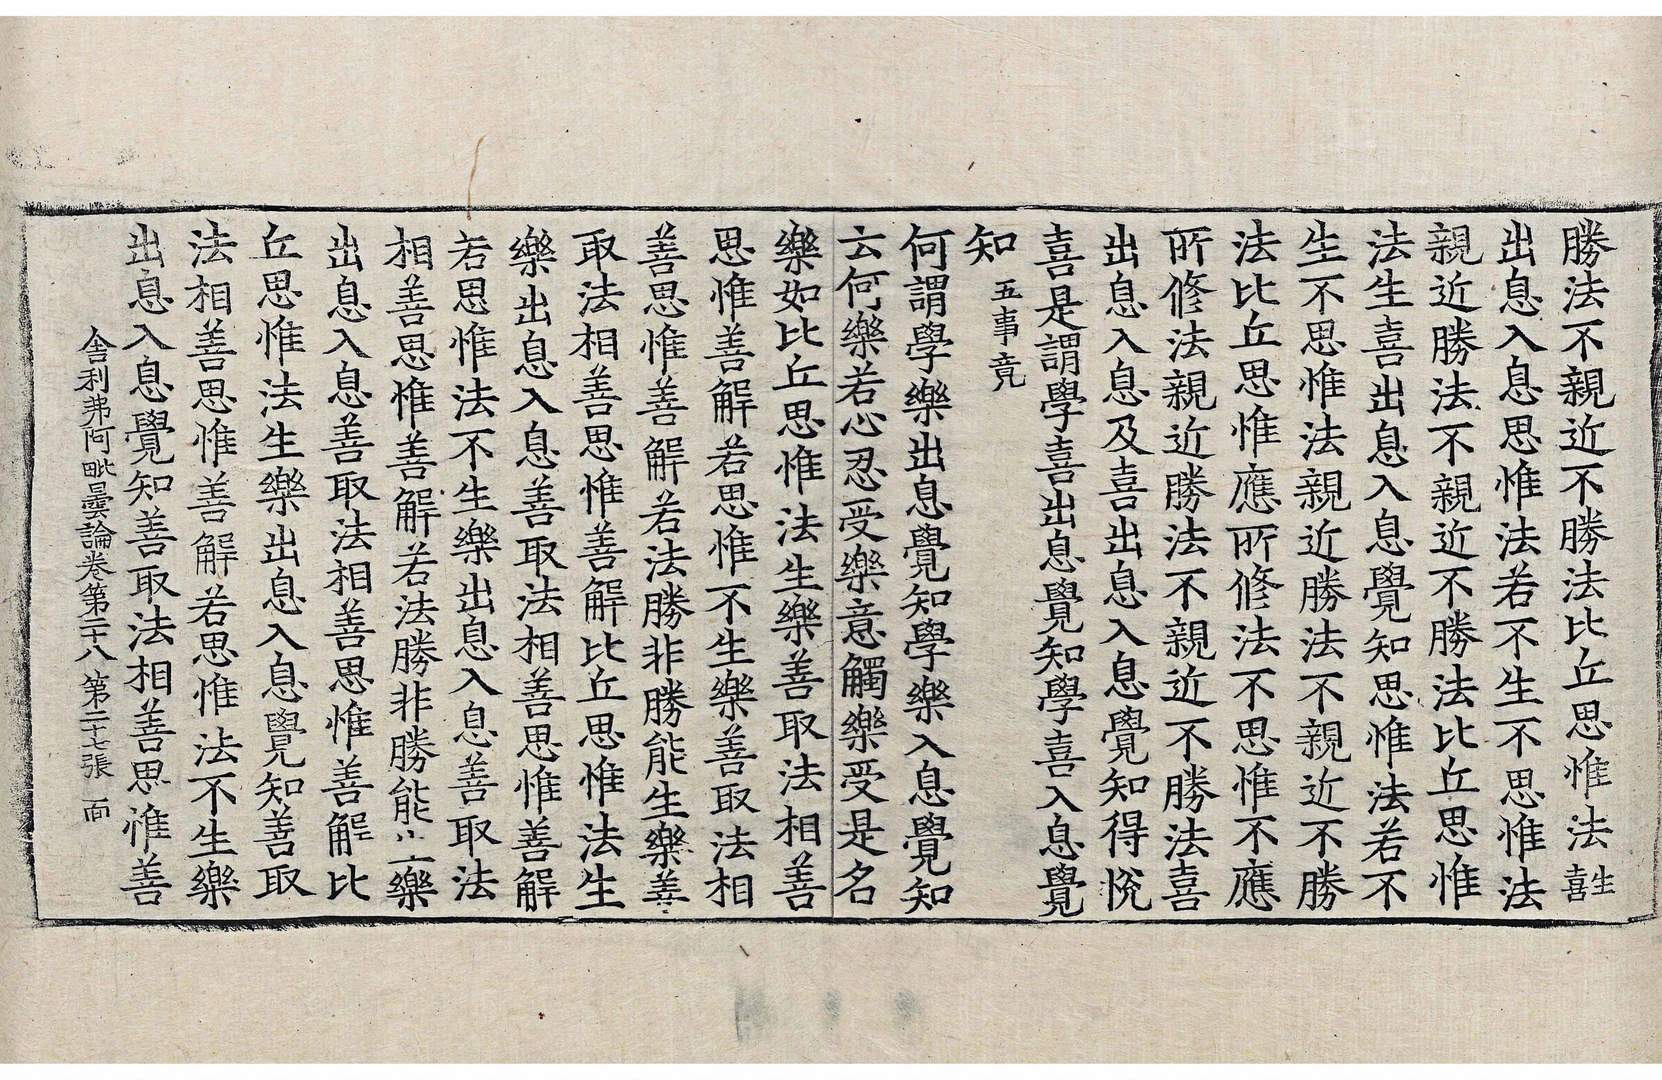 勝法不親近不勝法比丘思惟法生喜
出息入息思惟法若不生不思惟法
親近勝法不親近不勝法比丘思惟
法生喜出息入息覺知思惟法若不
生不思惟法親近勝法不親近不勝
法比丘思惟應所修法不思惟不應
所修法親近勝法不親近不勝法喜
出息入息及喜出息入息覺知得悅
喜是謂學喜出息覺知學喜入息覺
知五事竟
何謂學樂出息覺知學樂入息覺知
云何樂若心忍受樂意觸樂受是名
樂如比丘思惟法生樂善取法相善
思惟善解若思惟不生樂善取法相
善思惟善解若法勝非勝能生樂善
取法相善思惟善解比丘思惟法生
樂出息入息善取法相善思惟善解
若思惟法不生樂出息入息善取法
相善思惟善解若法勝非勝能樂
出息入息善取法相善思惟善解比
丘思惟法生樂出息入息覺知善取
法相善思惟善解若思惟法不生樂
出息入息覺知善取法相善思惟善
舍利弗阿毗曇論卷第二十八 第二十七張 面